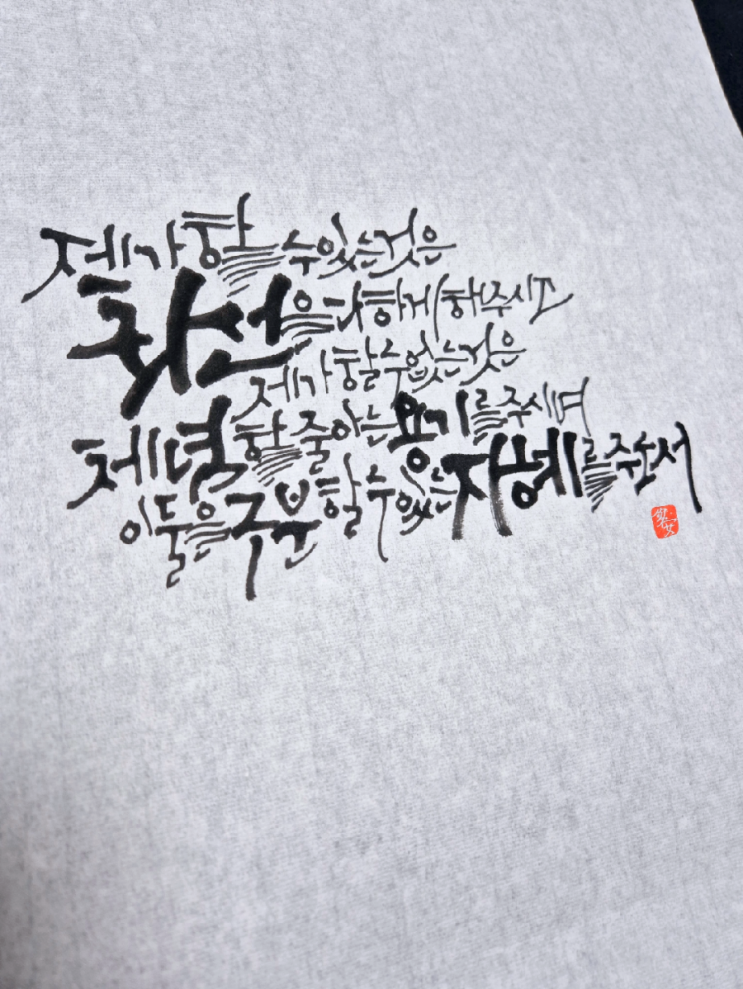 제가 할 수 있는 것은
최선을 다하게 해주시고
제가 할 수 없는 것은
체념할 줄 아는 용기를 주시며
이 둘을 구분할 수 있는 지혜를 주소서